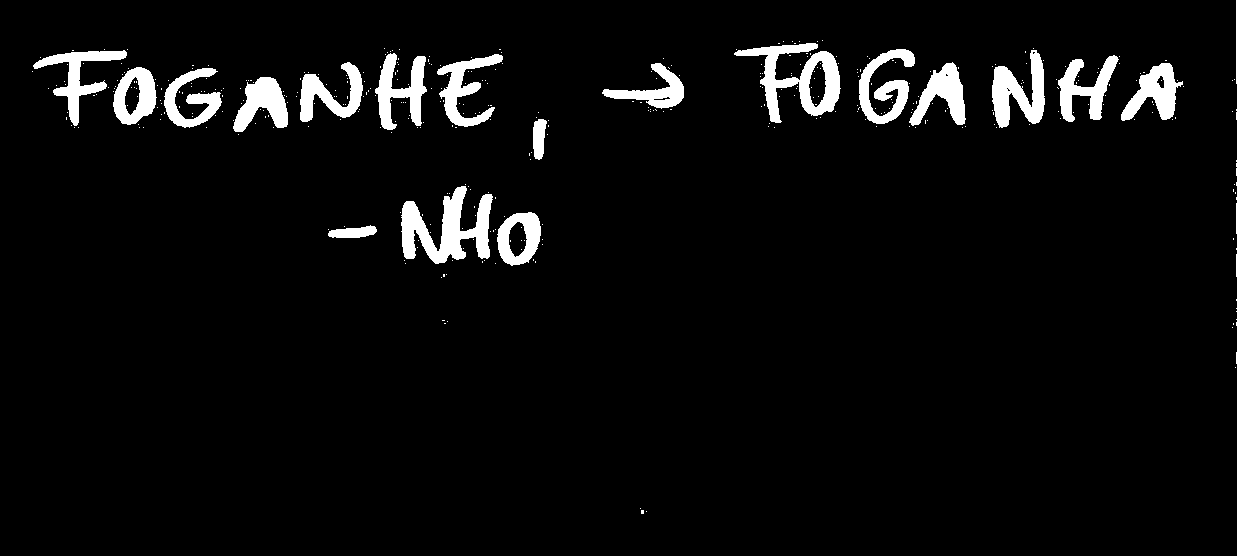 FOGANHE, → FOGANHA
-NHO